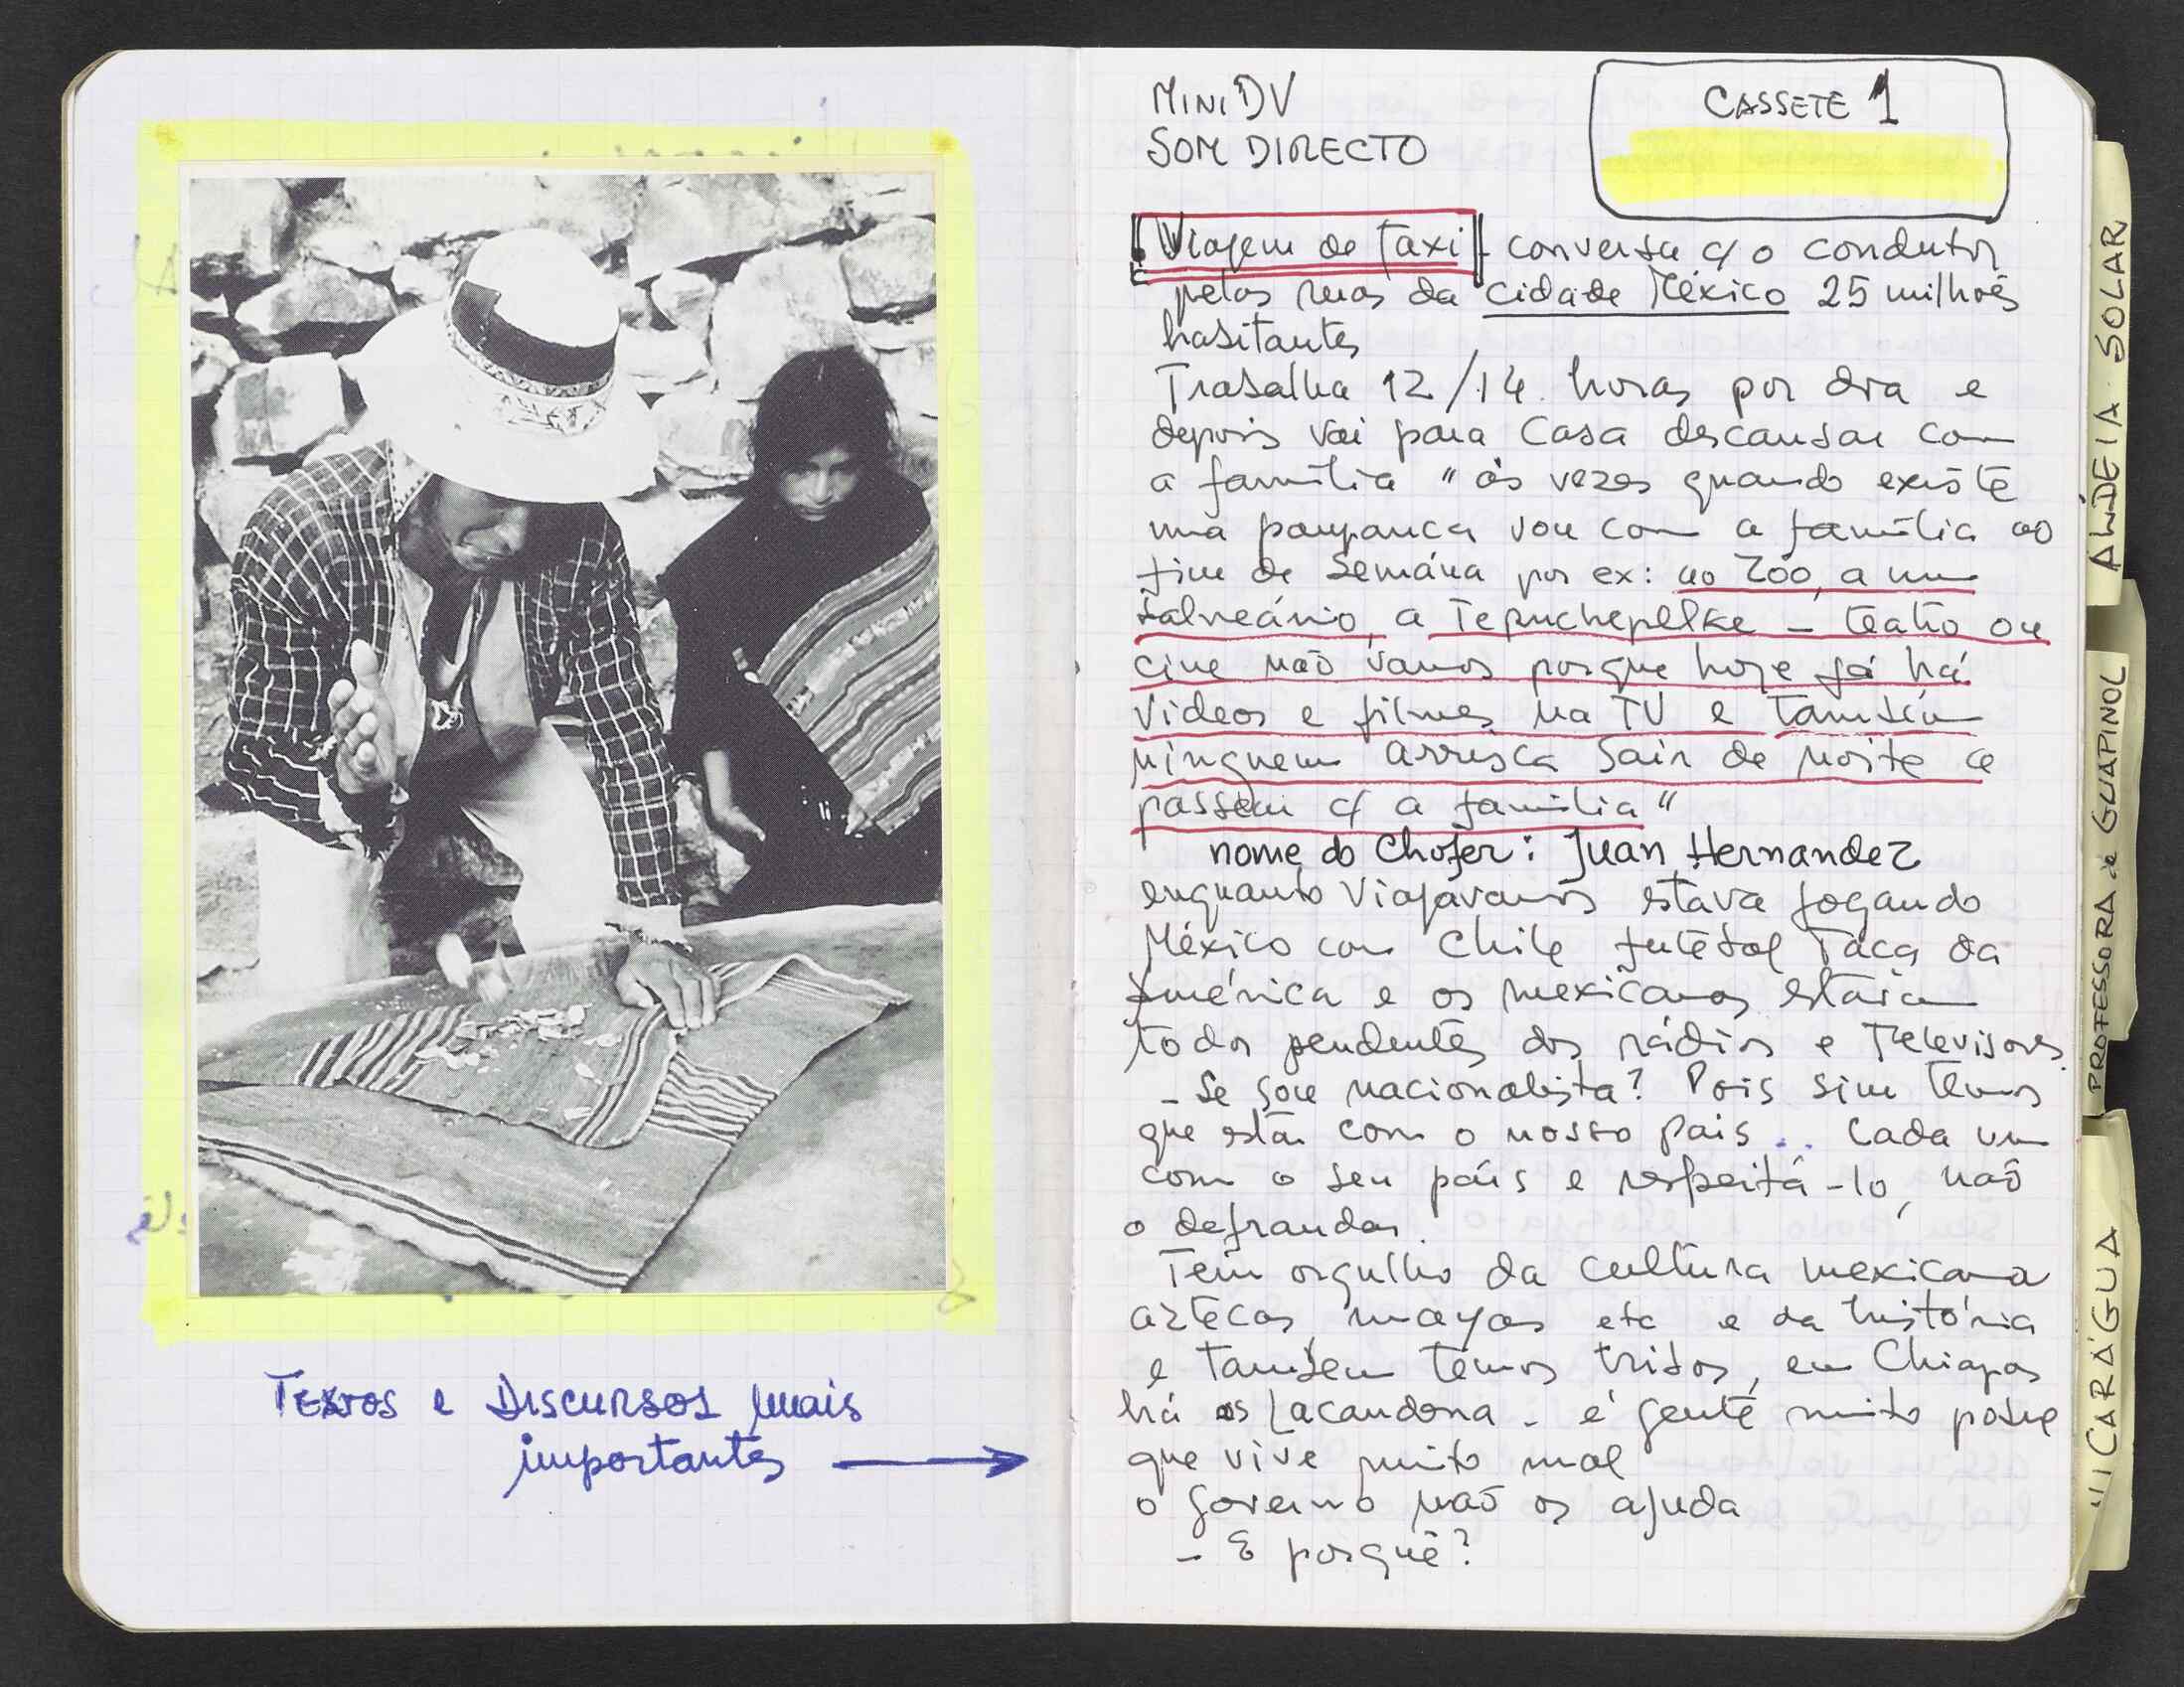 Textos e Discursos mais
importantes
MINI DV
SOM DIRECTO
CASSETE 1
Viagem de taxi - conversa c/ o condutor
pelas ruas da cidade México 25 milhões
habitantes
Trabalha 12/14 horas por dia e
depois vai para casa descansar com
a família "às vezes quando existe
uma poupança vou com a família ao
fim de semána por ex: ao Zóo, a um
balneário, a - teatro ou
cine não vamos porque hoje já há
videos e filmes na TV e também
ninguem arrisca sair de noite a
passear c/ a família"
nome do Chofer: Juan Hernandez
enquanto viajavamos estava jogando
México com Chile futebol Taça da
América e os mexicanos estavam
todos pendentes dos rádios e Televisores
- Se sou nacionalista? Pois sim temos
que estar com o nosso pais... Cada um
com o seu país e respeitá-lo, não
o defraudar.
Tem orgulho da cultura mexicana
aztecas, mayas etc e da história
e tambem temos tribos, em Chiapas
há os Lacandona - é gente muito pobre
que vive muito mal
o governo não os ajuda
- E porquê?
ALDEIA SOLAR
PROFESSORA de GUAPINOL
NICARÁGUA